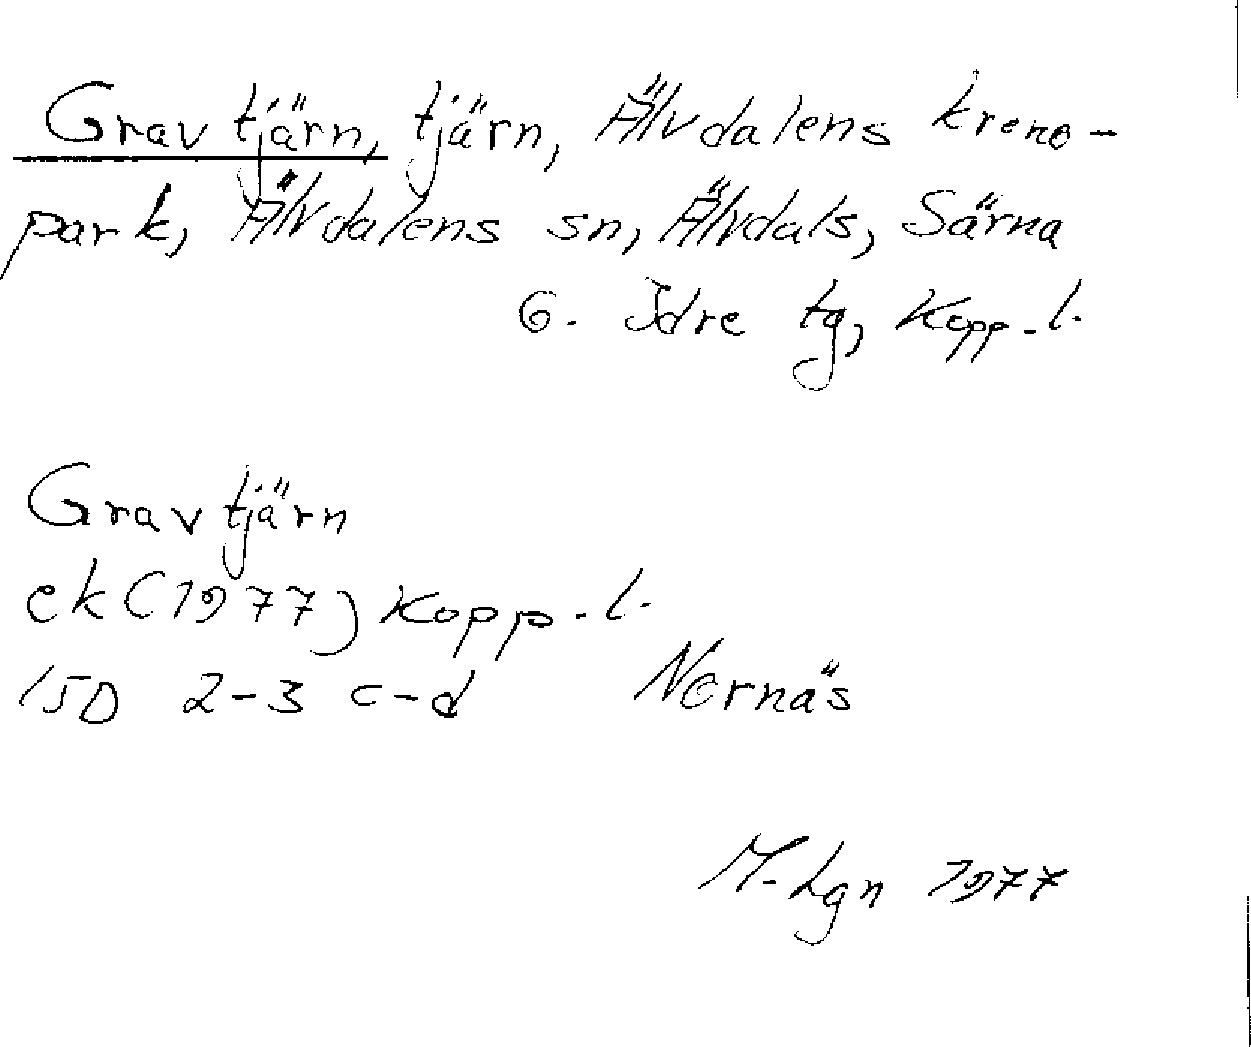 Gravtjärn, tjärn, Älvdalens krono-
park, Älvdalens sn, Älvdals, Särna
o. Idre tg, Kopp. l.
Gravtjärn
ek (1977) Kopp. l.
15D 2-3 c-d Nornäs
M. Lgn 1977